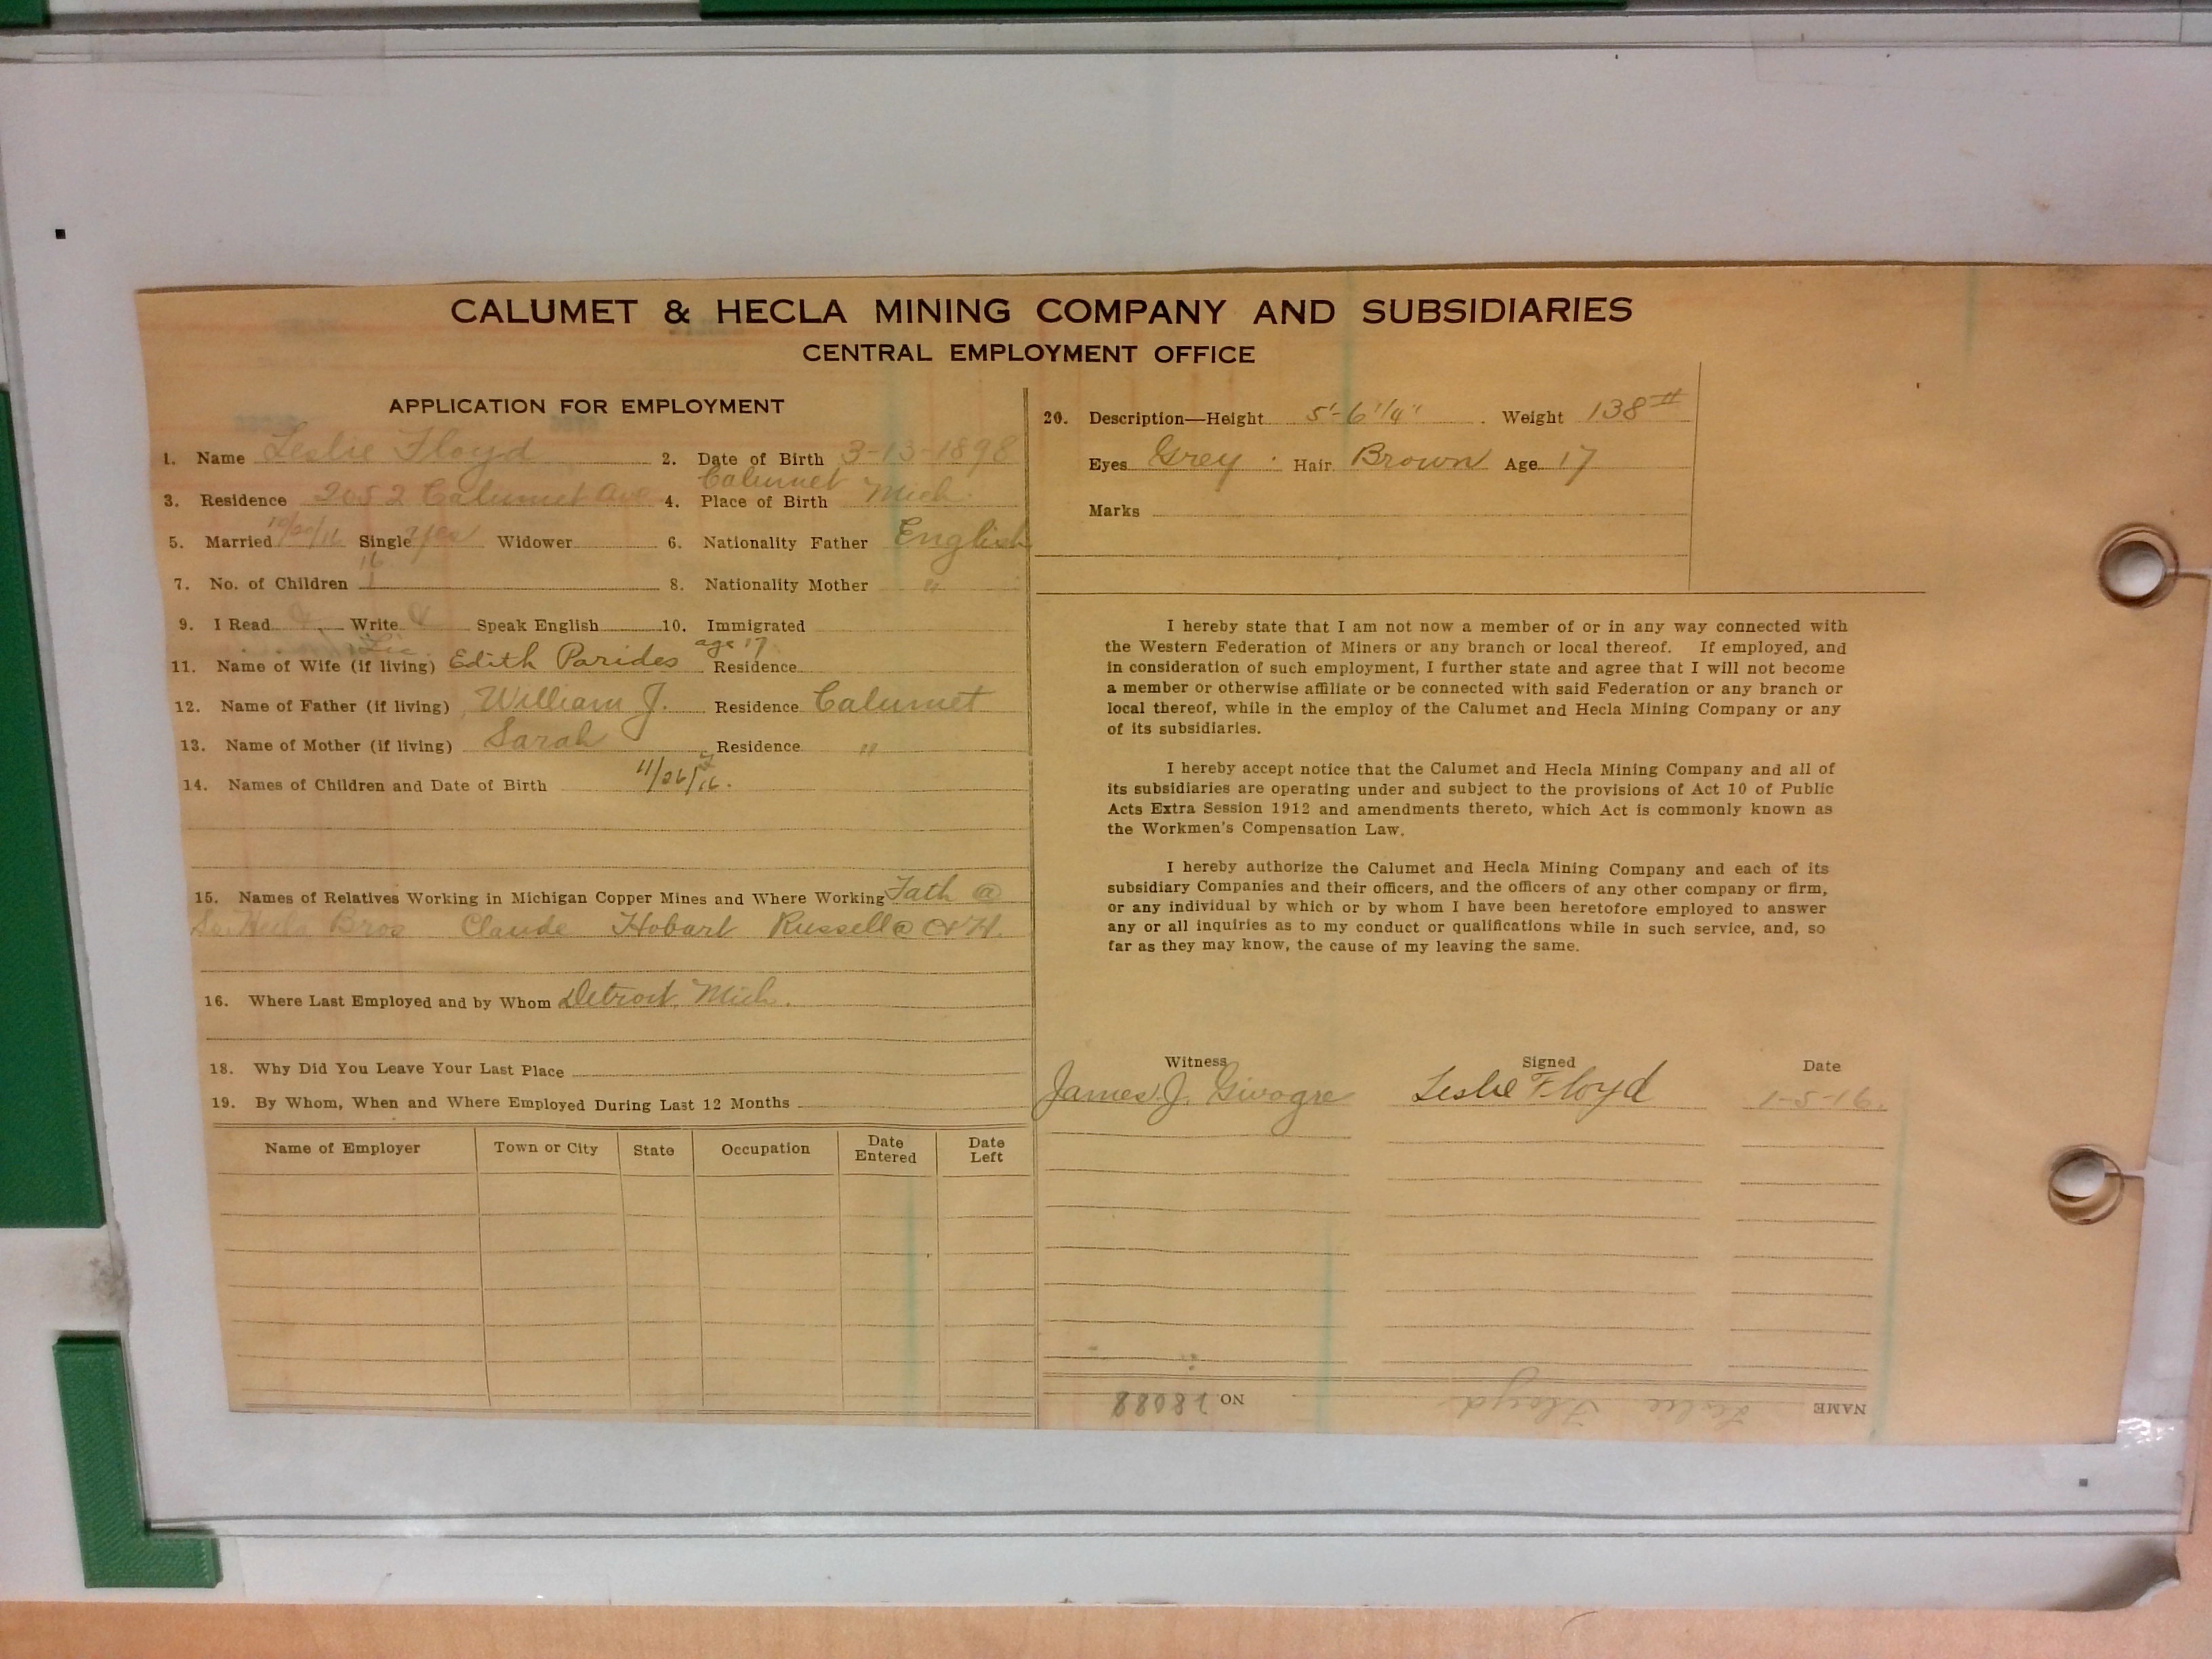 CALUMET & HECLA MINING COMPANY AND SUBSIDIARIES
CENTRAL EMPLOYMENT OFFICE
APPLICATION FOR EMPLOYMENT
1. Name Leslie Floyd 2. Date of Birth 3-13-1898
3. Residence 2052 Calumet Ave 4. Place of Birth Calumet Mich.
5. Married 10/20/16 Single yes Widower
6. Nationality Father English
7. No. of Children 8. Nationality Mother "
9. I Read Write Speak English 10. Immigrated
11. Name of Wife (if living) Edith Parides age 17 Residence
12. Name of Father (if living) William J. Residence Calumet
13. Name of Mother (if living) Sarah Residence "
14. Names of Children and Date of Birth 11/26/16.
15. Names of Relatives Working in Michigan Copper Mines and Where Working Fath @
So. Hecla Bros Claude Hobart Russell @ C&H.
16. Where Last Employed and by Whom Detroit, Mich.
18. Why Did You Leave Your Last Place
19. By Whom, When and Where Employed During Last 12 Months
Name of Employer Town or City State Occupation Date Entered Date Left
20. Description—Height 5'-6 1/4" Weight 138#
Eyes Grey Hair Brown Age 17
Marks
I hereby state that I am not now a member of or in any way connected with
the Western Federation of Miners or any branch or local thereof. If employed, and
in consideration of such employment, I further state and agree that I will not become
a member or otherwise affiliate or be connected with said Federation or any branch or
local thereof, while in the employ of the Calumet and Hecla Mining Company or any
of its subsidiaries.
I hereby accept notice that the Calumet and Hecla Mining Company and all of
its subsidiaries are operating under and subject to the provisions of Act 10 of Public
Acts Extra Session 1912 and amendments thereto, which Act is commonly known as
the Workmen's Compensation Law.
I hereby authorize the Calumet and Hecla Mining Company and each of its
subsidiary Companies and their officers, and the officers of any other company or firm,
or any individual by which or by whom I have been heretofore employed to answer
any or all inquiries as to my conduct or qualifications while in such service, and, so
far as they may know, the cause of my leaving the same.
Witness Signed Date
James J. Leslie Floyd 1-5-16.
NAME Leslie Floyd NO. 18088